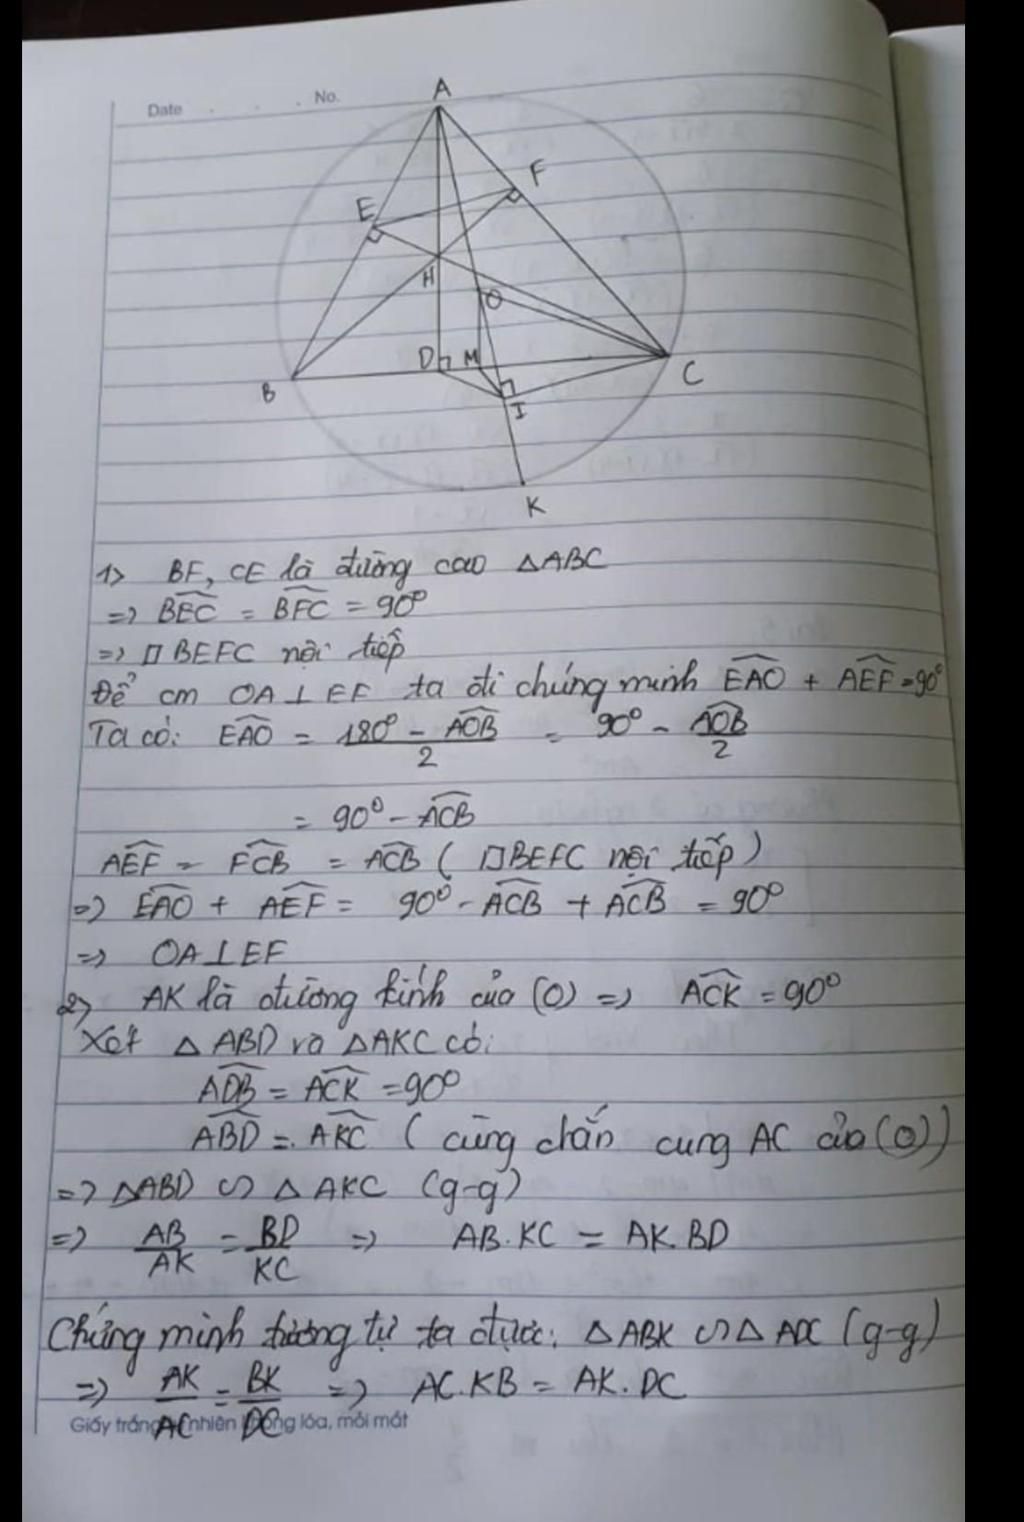 Date . . . No.
A
F
E
H
O
D M
B
C
I
K
1> BF, CE là đường cao △ABC
=> BEC = BFC = 90°
=> □BEFC nội tiếp
Để cm OA⊥EF ta đi chứng minh EAO + AEF = 90°
Ta có: EAO = (180° - AOB)/2 = 90° - AOB/2
= 90° - ACB
AEF = FCB = ACB (□BEFC nội tiếp)
=> EAO + AEF = 90° - ACB + ACB = 90°
=> OA⊥EF
2> AK là đường kính của (O) => ACK = 90°
Xét △ABD và △AKC có:
ADB = ACK = 90°
ABD = AKC (cùng chắn cung AC của (O))
=> △ABD ∽ △AKC (g-g)
=> AB/AK = BD/KC => AB.KC = AK.BD
Chứng minh tương tự ta được: △ABK ∽ △ADC (g-g)
=> AK/AC = BK/DC => AC.KB = AK.DC
Giấy trắng nhiên không lóa, mỏi mắt